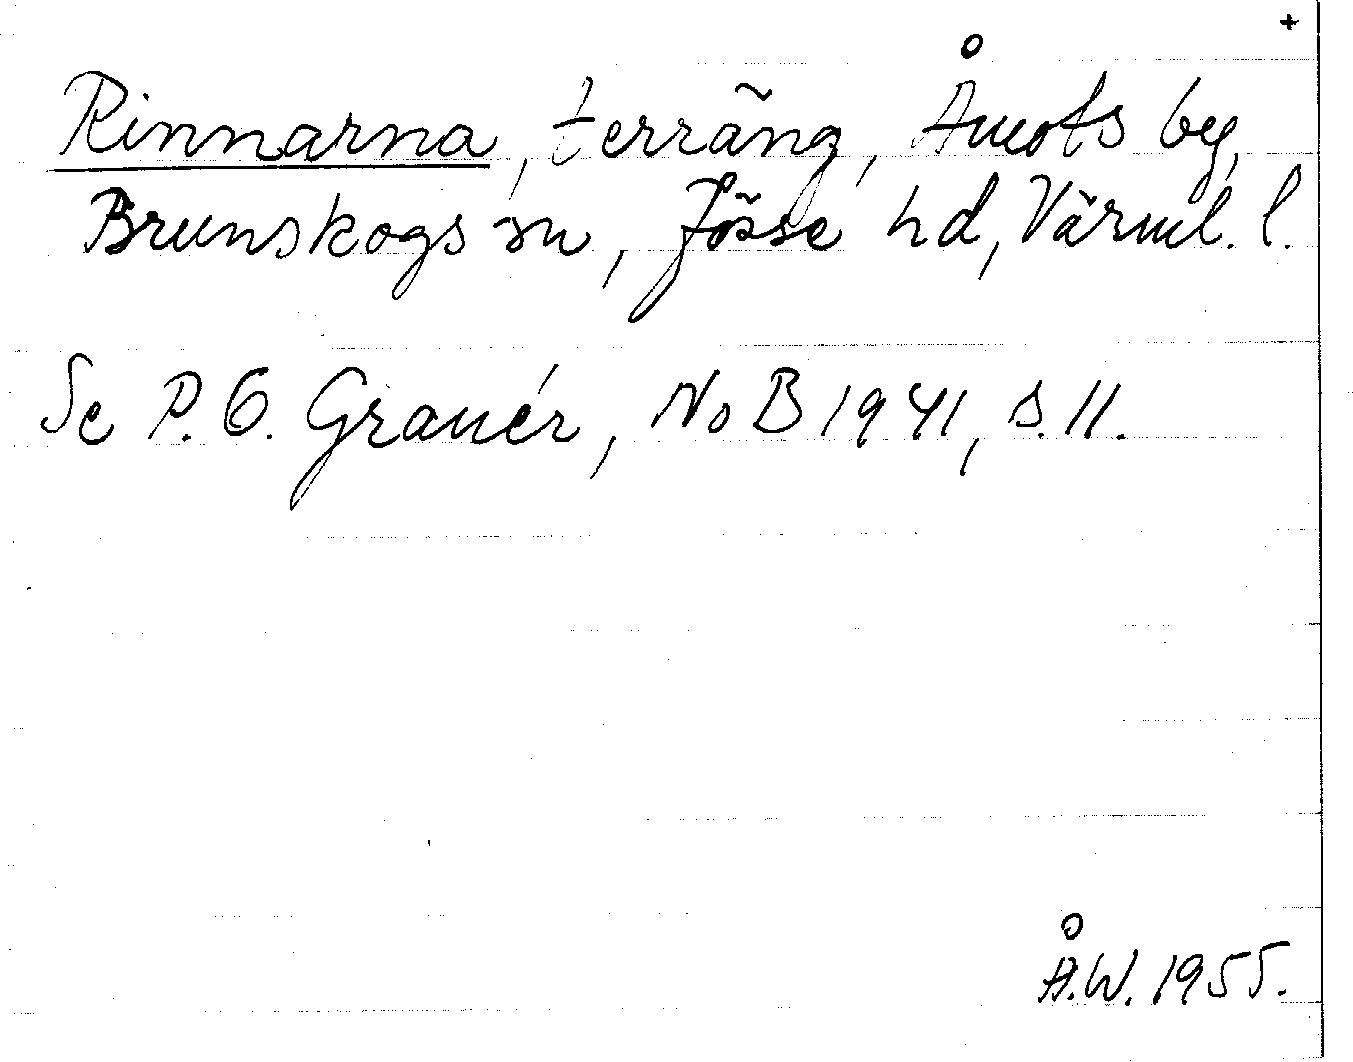 +
Rinnarna, terräng, Åmots by,
Brunskogs sn, Jösse hd, Värml. l.
Se P. O. Granér, NoB 1941, s. 11.
Å.W. 1955.